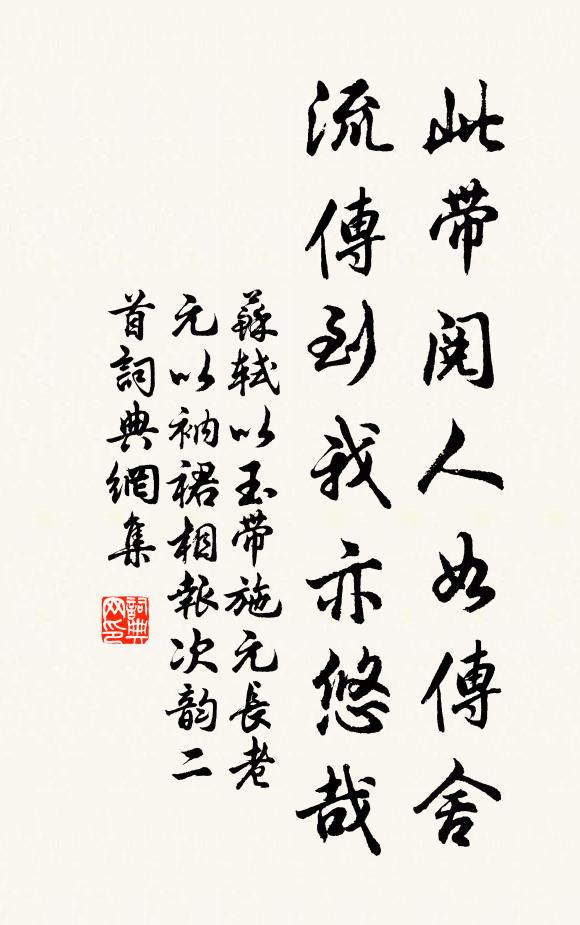 此帶閱人如傳舍
流傳到我亦悠哉
蘇軾以玉帶施元長老
元以衲裙相報次韵二
首詞典網集
詞典网印